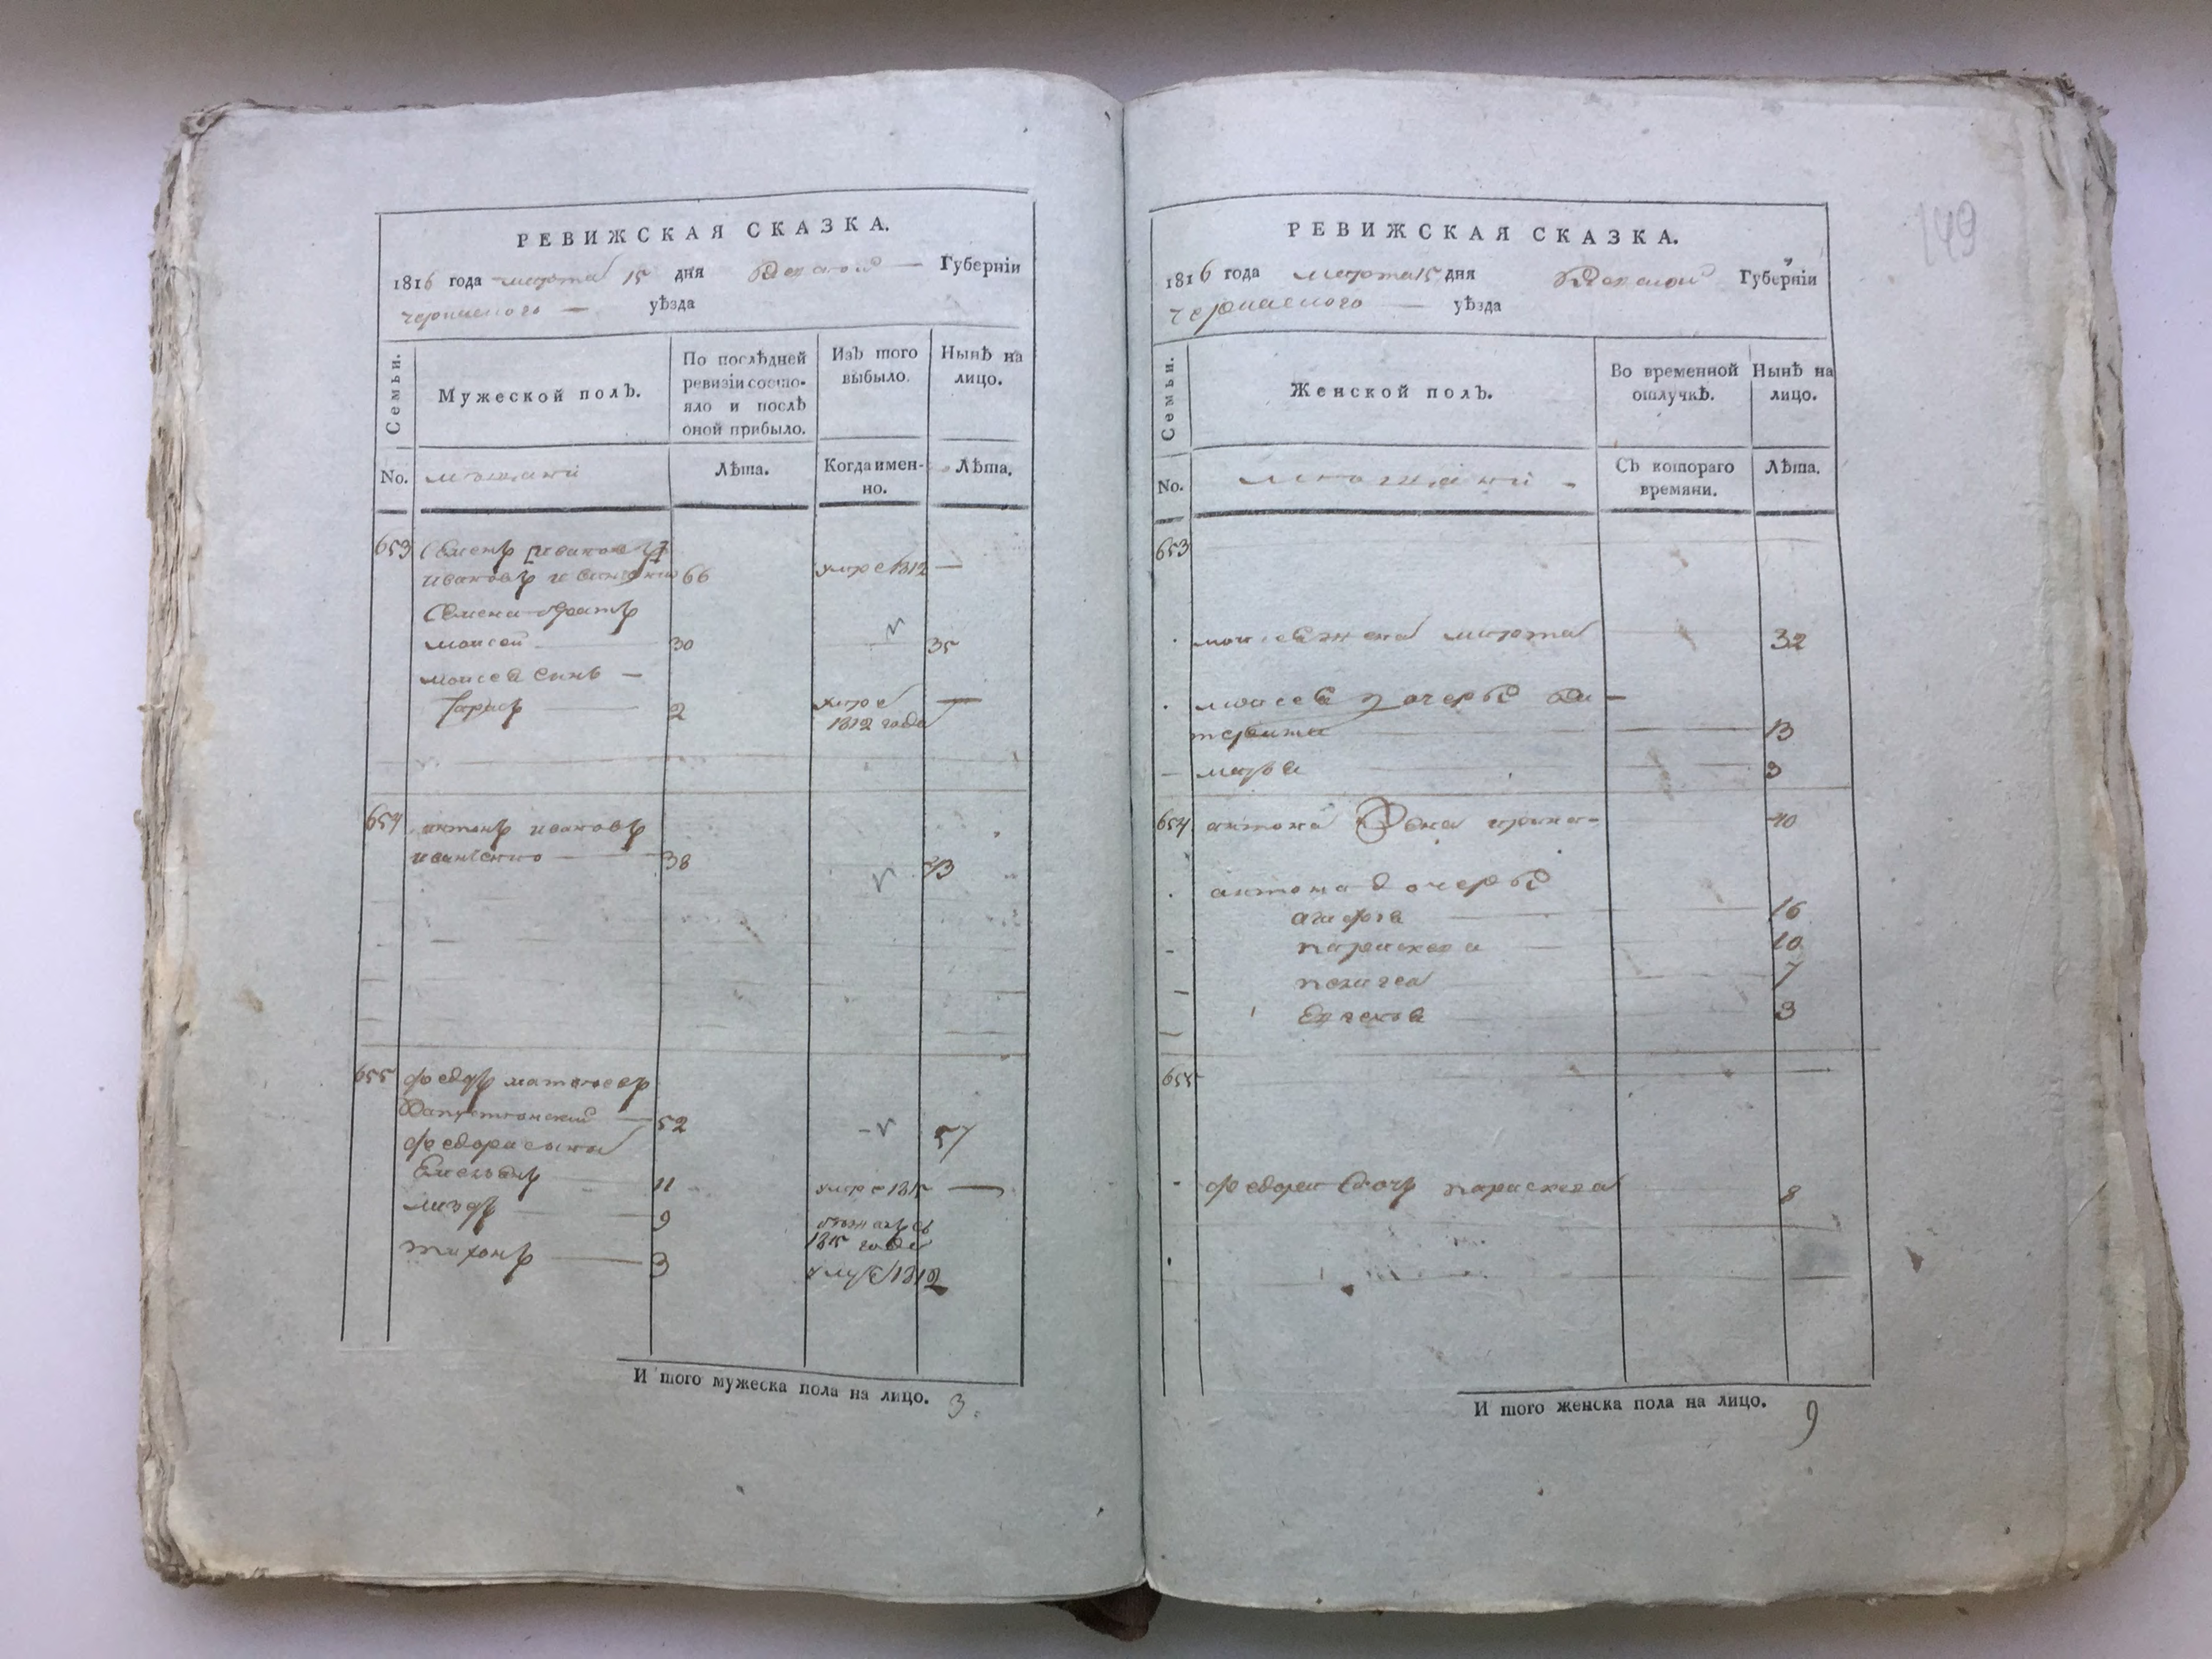 РЕВИЖСКАЯ СКАЗКА.
1816 года марта 15 дня Киевской Губерніи
Черкаского уѣзда
Семьи.
Мужеской полъ.
По послѣдней ревизіи состо-
яло и послѣ оной прибыло.
Изъ того выбыло.
Нынѣ на лицо.
No.
мещани
Лѣта.
Когда имен-
но.
Лѣта.
653 Семенъ Ивановъ
Ивановъ 66 умре 1812 —
Семена братъ
моисей 30 35
моисея синъ —
Тарасъ 2 умре —
1812 года
654 антонъ ивановъ
иваненко 38 43
655 федоръ матвеевъ
52 57
федора сыны
Емельянъ 11 умре 1815 —
9
1815 года
тихонъ 3 умре 1812
И того мужеска пола на лицо. 3
149
РЕВИЖСКАЯ СКАЗКА.
1816 года марта 15 дня Киевской Губерніи
Черкаского уѣзда
Семьи.
Женской полъ.
Во временной отлучкѣ.
Нынѣ на лицо.
No.
мещани
Съ котораго времяни.
Лѣта.
653
моисея жена марта 32
моисея дочеры Ка-
терина 13
марья 3
654 антона жена ирина 40
антона дочеры
агафия 16
параскева 10
пелагея 7
Евгения 3
655
федора дочъ параскева 8
И того женска пола на лицо. 9